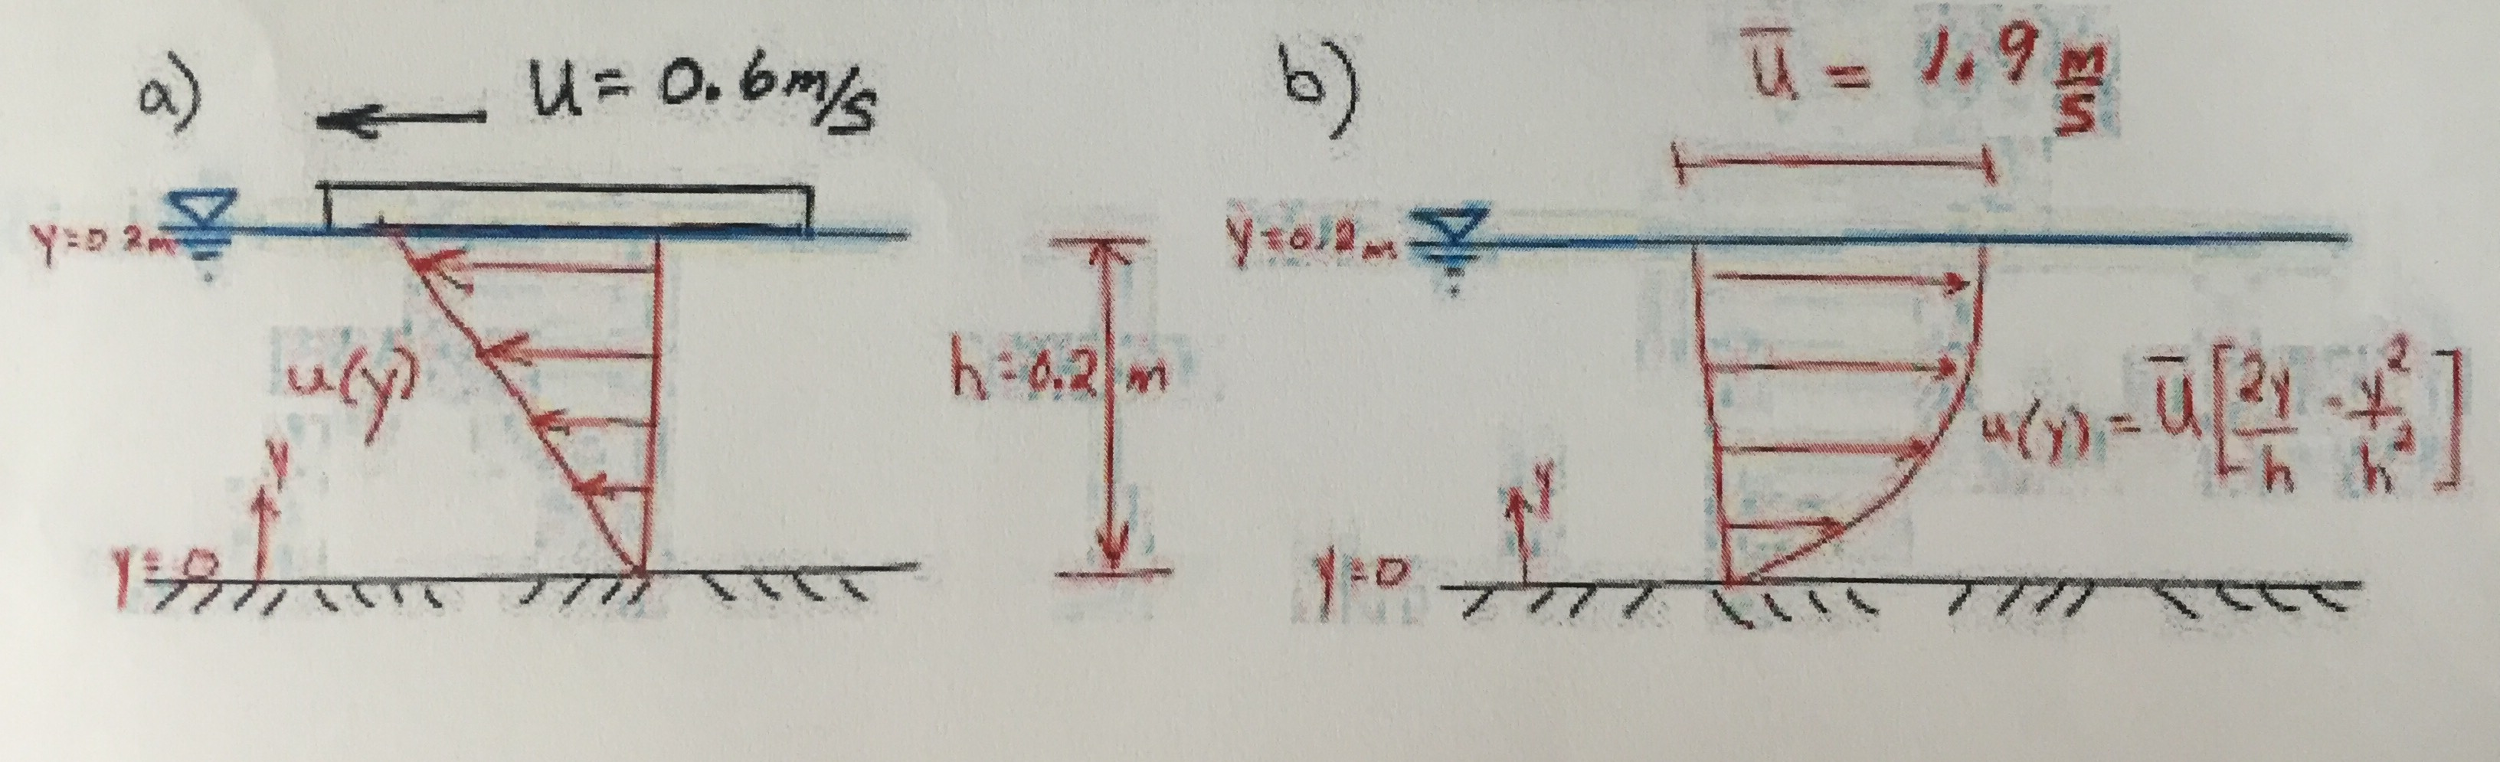 a)
U = 0.6 m/s
y=0.2m
u(y)
y
y=0
h=0.2 m
b)
U̅ = 1.9 m/s
y=0.2m
u(y) = U̅ [2y/h - y²/h²]
y
y=0